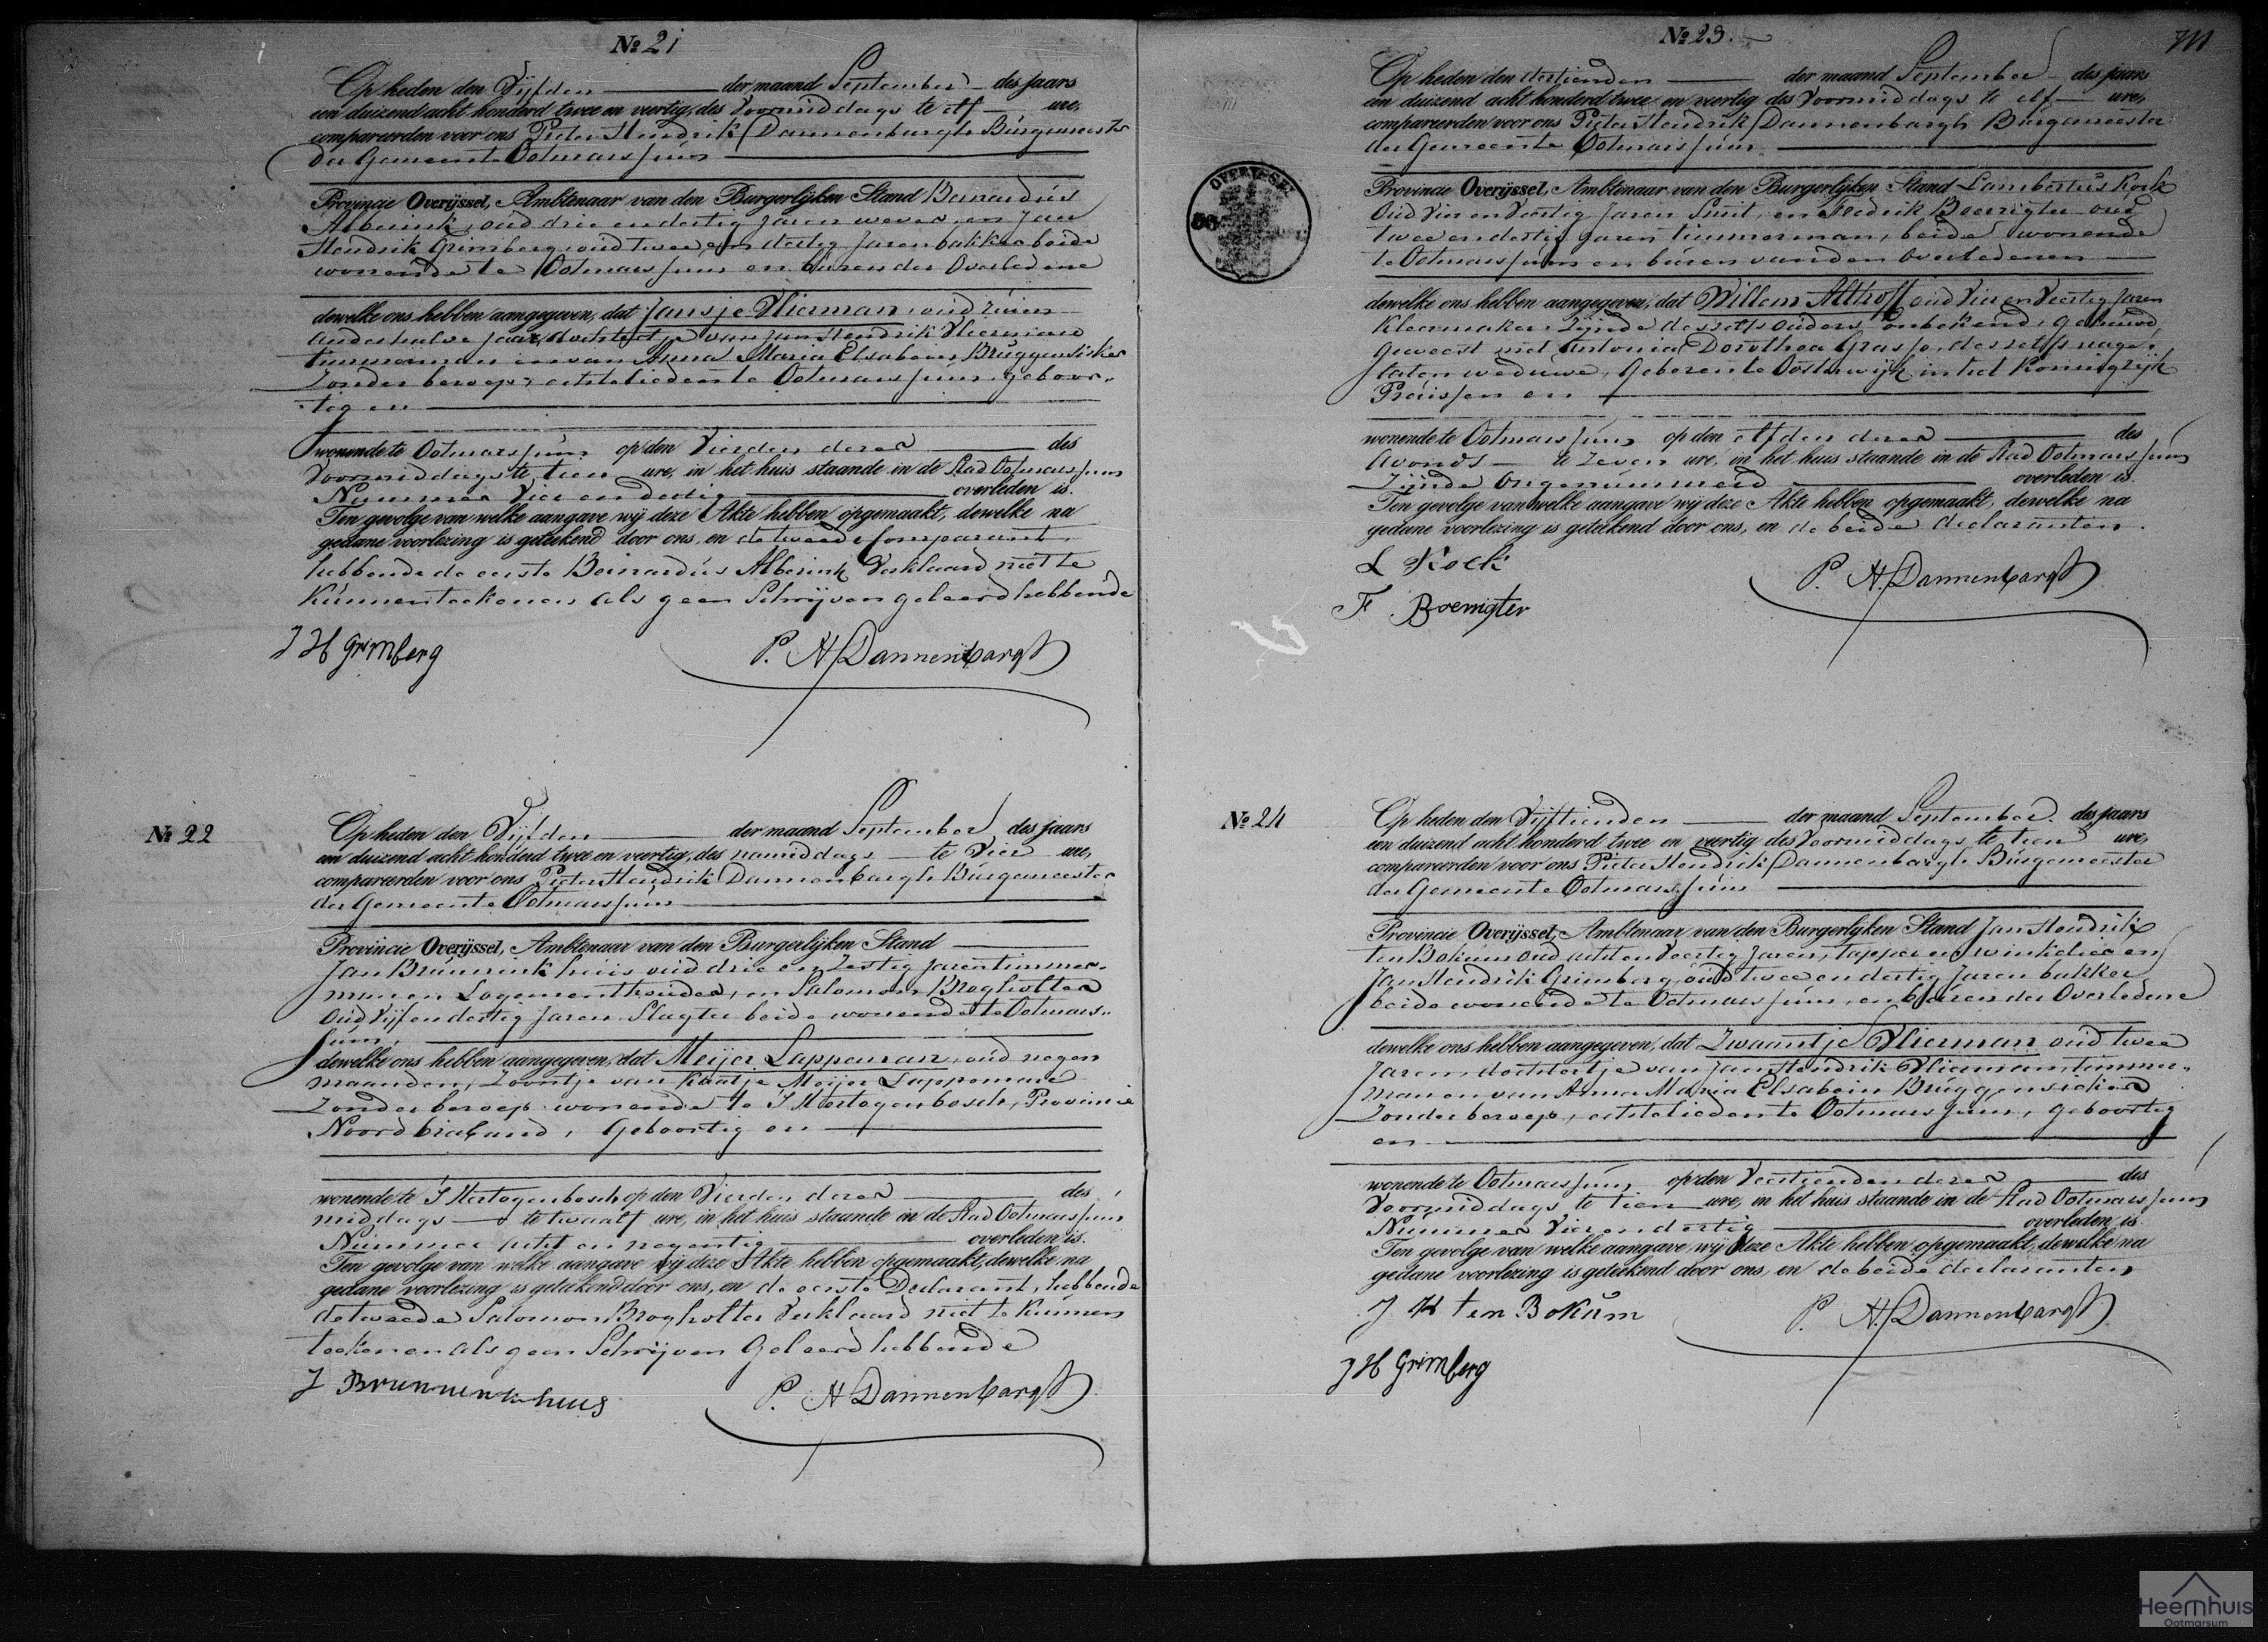 № 21
Op heden den Vijfden der maand September des jaars
een duizend acht honderd twee en veertig, des Voormiddags te elf ure,
compareerden voor ons Pieter Hendrik Dannenbargh Burgemeester
der Gemeente Ootmarssum
Provincie Overijssel, Ambtenaar van den Burgerlijken Stand Bernardus
Alberink, oud drie en dertig Jaren wever, en Jan
Hendrik Grimberg, oud twee en dertig Jaren bakker beide
wonende te Ootmarssum en buren der Overledene
dewelke ons hebben aangegeven, dat Jansje Vlierman, oud ruim
anderhalve jaar, dochtertje van Jan Hendrik Vlierman
timmerman en van Anna Maria Elsabein Bruggensicker
Zonder beroep, echtelieden te Ootmarssum, geboor-
tig en
wonende te Ootmarssum op den Vierden dezer des
Voormiddags te tien ure, in het huis staande in de Stad Ootmarssum
Nummer Vier en dertig overleden is.
Ten gevolge van welke aangave wij deze Akte hebben opgemaakt, dewelke na
gedane voorlezing is geteekend door ons, en de tweede Comparant,
hebbende de eerste Bernardus Alberink Verklaard niet te
kunnen teekenen als geen Schrijven geleerd hebbende
J H Grimberg P. H Dannenbargh
№ 22
Op heden den Vijfden der maand September des jaars
een duizend acht honderd twee en veertig, des namiddags te Vier ure,
compareerden voor ons Pieter Hendrik Dannenbargh Burgemeester
der Gemeente Ootmarssum
Provincie Overijssel, Ambtenaar van den Burgerlijken Stand
Jan Brunninkhuis oud drie en Zestig Jaren timmer-
man en Logementhouder, en Salomon Brogholter
Oud Vijf en dertig Jaren Slagter beide wonende te Ootmars-
sum,
dewelke ons hebben aangegeven, dat Meijer Lappeman, oud negen
maanden, Zoontje van Kaatje Meijer Lappeman
Zonder beroep wonende te S'Hertogenbosch, Provincie
Noordbraband, Geboortig en
wonende te S'Hertogenbosch op den Vierden dezer des
middags te twaalf ure, in het huis staande in de Stad Ootmarssum
Nummer acht en negentig overleden is.
Ten gevolge van welke aangave wij deze Akte hebben opgemaakt, dewelke na
gedane voorlezing is geteekend door ons, en de eerste Declarant, hebbende
de tweede Salomon Brogholter Verklaard niet te kunnen
teekenen als geen Schrijven Geleerd hebbende
J Brunninkhuis P. H Dannenbargh
№ 23.
Op heden den dertienden der maand September des jaars
een duizend acht honderd twee en veertig des Voormiddags te elf ure,
compareerden voor ons Pieter Hendrik Dannenbargh Burgemeester
der Gemeente Ootmarssum
OVERIJSSEL
Provincie Overijssel, Ambtenaar van den Burgerlijken Stand Lambertus Kock
Oud Vier en Veertig Jaren Smit, en Fredrik Boerrigter oud
twee en dertig Jaren timmerman, beide wonende
te Ootmarssum en buren van den Overledenen
dewelke ons hebben aangegeven, dat Willem Althoff oud Vier en Veertig Jaren
Kleermaker, Zijnde deszelfs ouders onbekend, gehuwd
Geweest met Antonia Dorothea Grasso, deszelfs nage-
laten weduwe, Geboren te Oosterwijk in het Koningrijk
Pruissen en
wonende te Ootmarssum op den elfden dezer des
Avonds te Zeven ure, in het huis staande in de Stad Ootmarssum
Zijnde Ongenummerd overleden is.
Ten gevolge van welke aangave wij deze Akte hebben opgemaakt, dewelke na
gedane voorlezing is geteekend door ons, en de beide declaranten.
L Kock
P. H. Dannenbargh
F. Boerrigter
№ 24
Op heden den Vijftienden der maand September des jaars
een duizend acht honderd twee en veertig des Voormiddags te tien ure,
compareerden voor ons Pieter Hendrik Dannenbargh Burgemeester
der Gemeente Ootmarssum
Provincie Overijssel, Ambtenaar van den Burgerlijken Stand Jan Hendrik
ten Bokum oud acht en Veertig Jaren, tapper en winkelier en
Jan Hendrik Grimberg, oud twee en dertig Jaren bakker
beide wonende te Ootmarssum, en buren der Overledene
dewelke ons hebben aangegeven, dat Zwaantje Vlierman oud twee
Jaren, dochtertje van Jan Hendrik Vlierman timmer-
man en van Anna Maria Elsabein Bruggensicker
Zonder beroep, echtelieden te Ootmarssum, geboortig
en
wonende te Ootmarssum op den Veertienden dezer des
Voormiddags te tien ure, in het huis staande in de Stad Ootmarssum
Nummer Vier en dertig overleden is.
Ten gevolge van welke aangave wij deze Akte hebben opgemaakt, dewelke na
gedane voorlezing is geteekend door ons, en de beide declaranten
J H ten Bokum P. H. Dannenbargh
J H Grimberg
Heemhuis
Ootmarsum